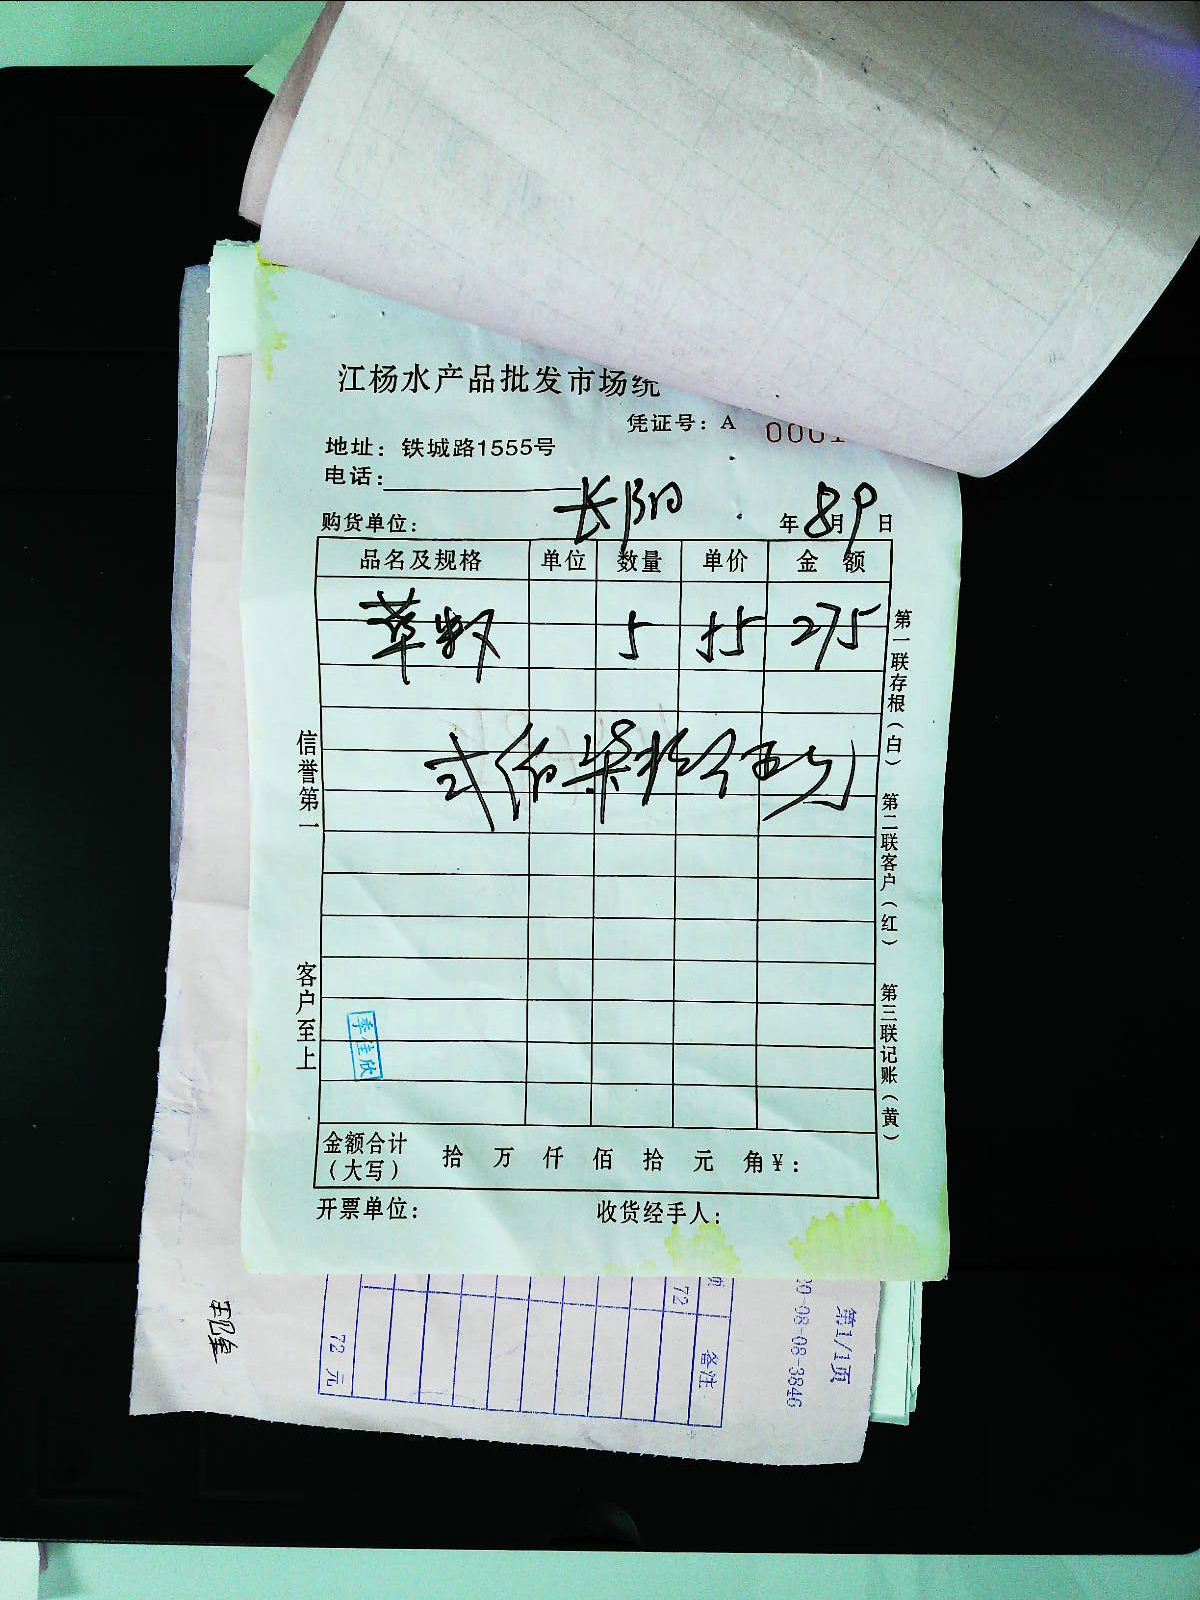 江杨水产品批发市场统
凭证号：A 0001
地址：铁城路1555号
电话：
购货单位： 长阳 年 8 月 9 日
品名及规格 单位 数量 单价 金 额
草 5 55 275
弍佰柒拾 伍元
信誉第一
客户至上
第一联存根（白） 第二联客户（红） 第三联记账（黄）
季佳欣
金额合计（大写） 拾 万 仟 佰 拾 元 角 ¥：
开票单位： 收货经手人：
第1/1页
0-08-08-3846
备注
72
72 元